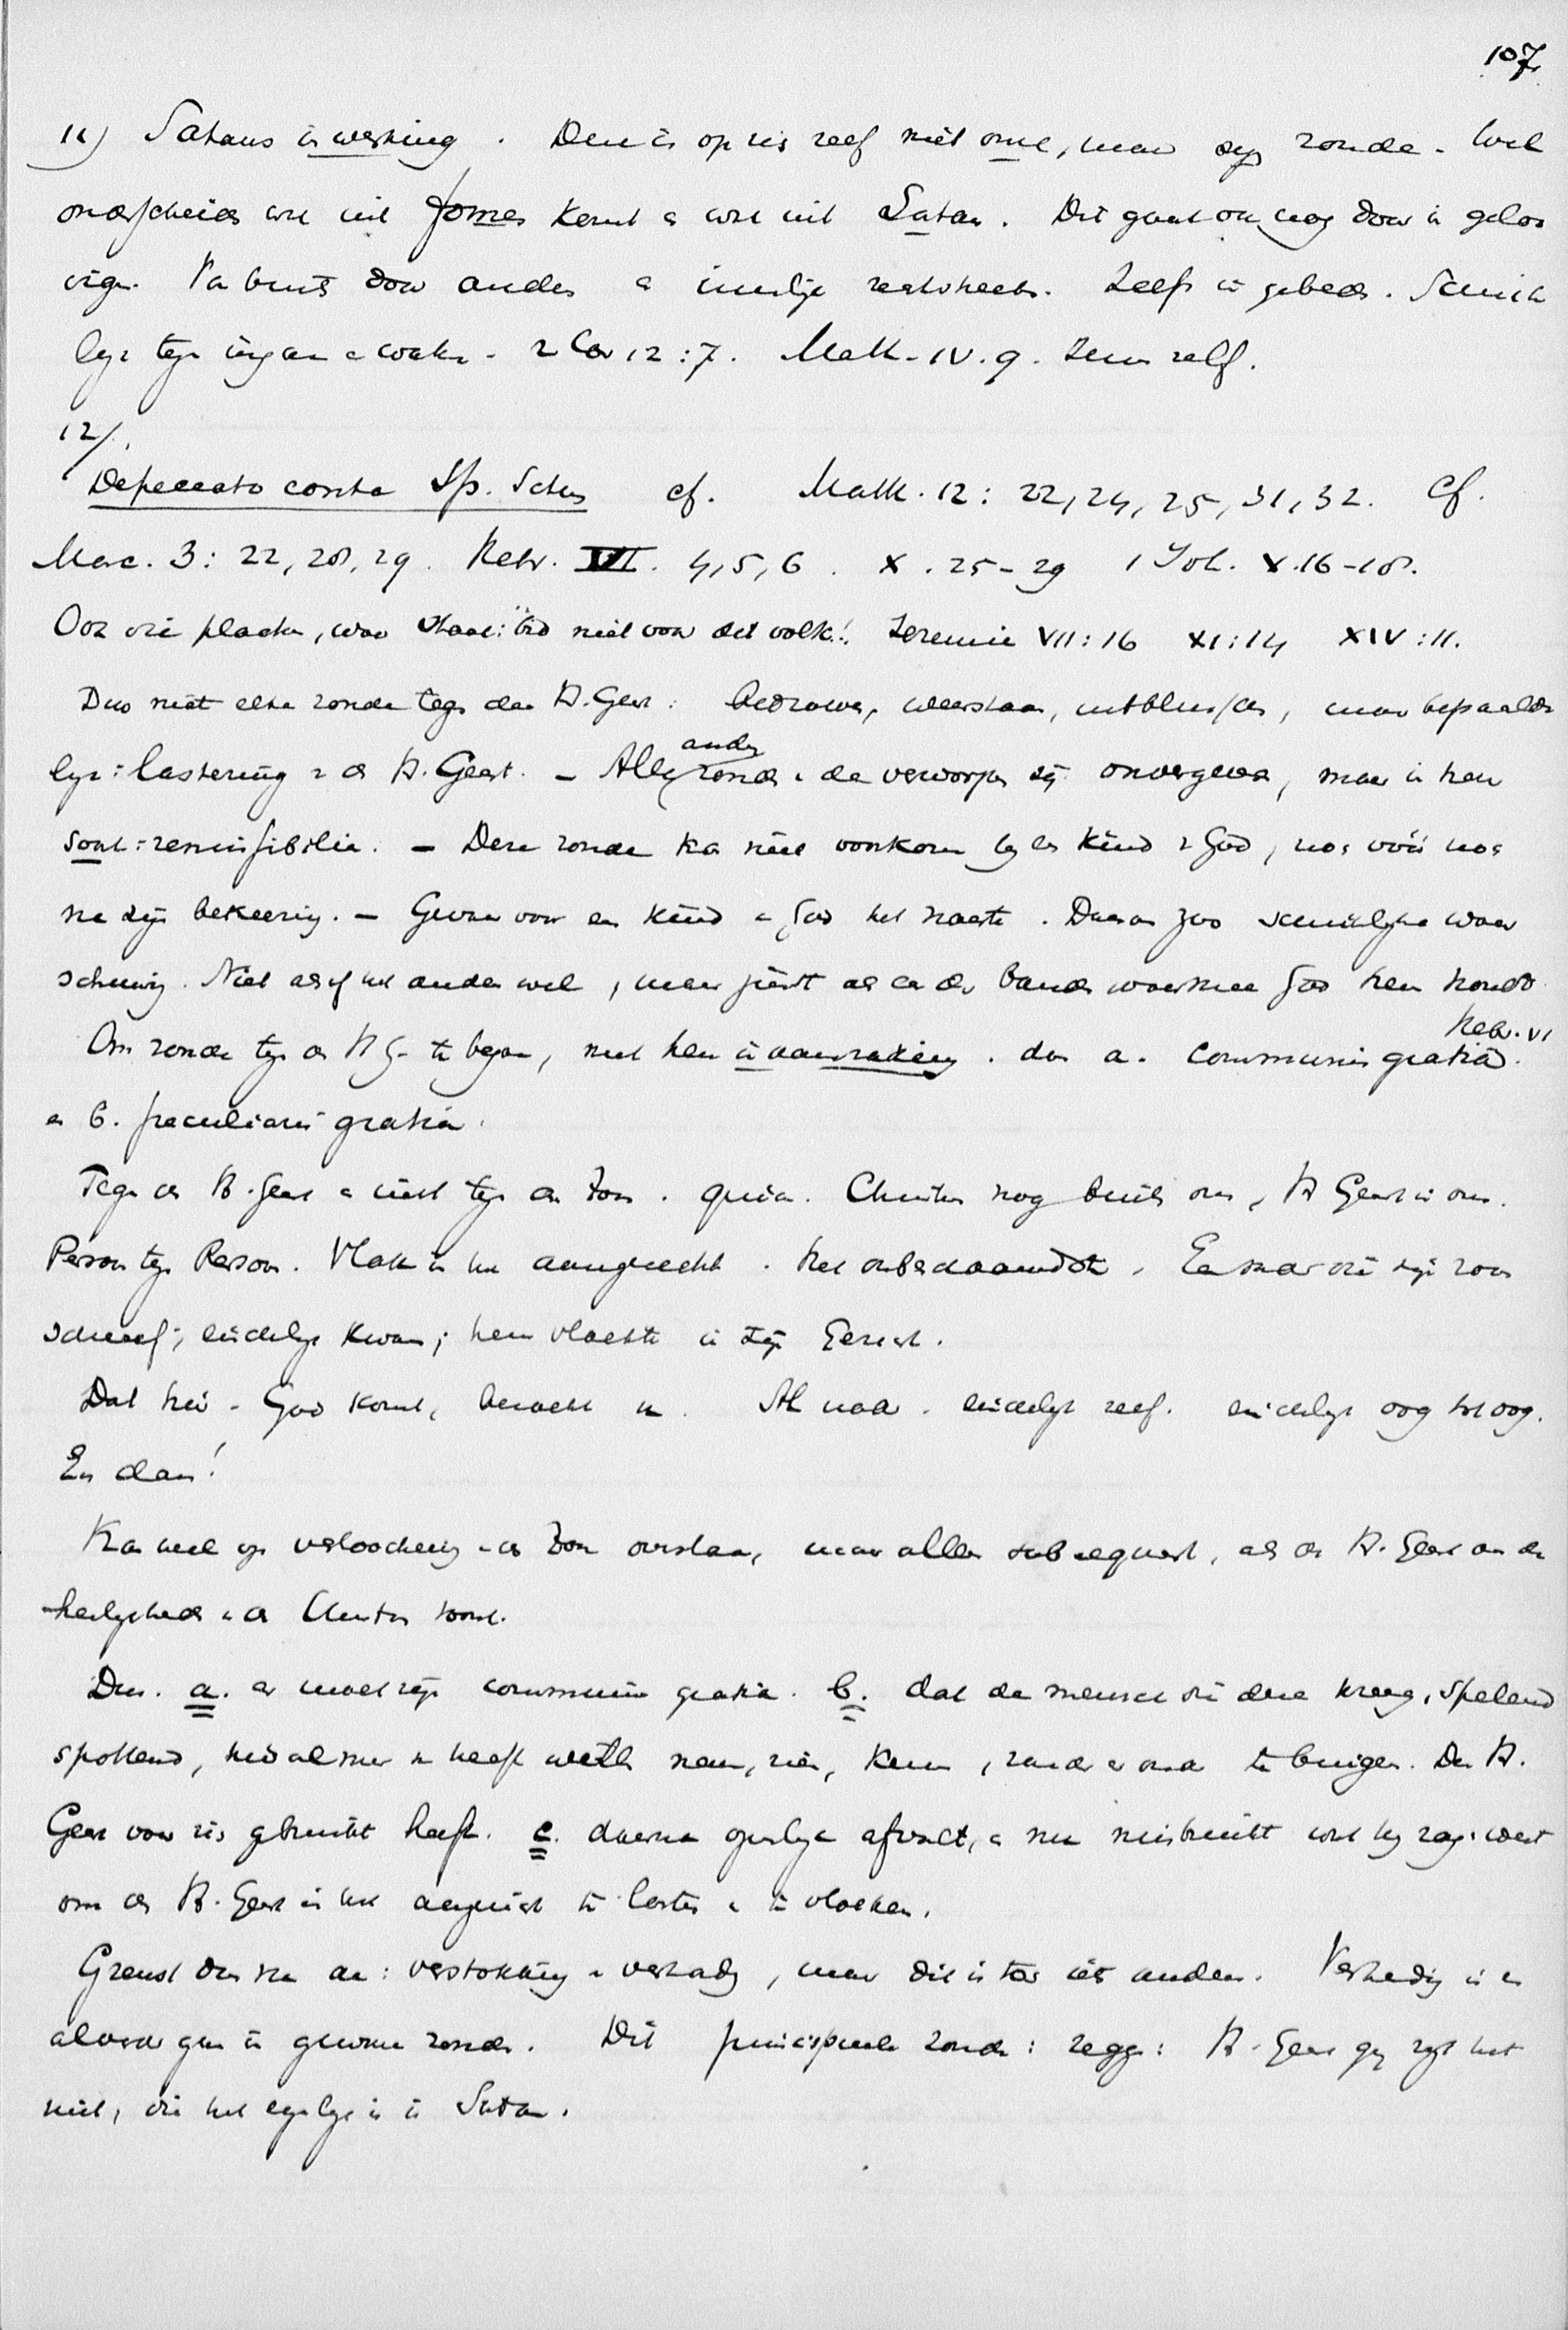 107
11) Satans inwerking. Deze is op zich zelf niet onze, maar zijn zonde. Wel
onderscheiden wat uit fomes komt en wat uit Satan. Dit gaat ook nog door in geloo
vigen. Van buiten door anderen en innerlijke . Zelfs in gebeden.
lijk tegen ingaan en waken. 2 Cor 12:7. Matth. IV. 9. Jezus zelf.
12/.
De peccato contra Sp. Sctus cf. Matth. 12: 22, 24, 25, 31, 32. Cf.
Marc. 3: 22, 28, 29. Hebr. VI. 4, 5, 6. X. 25-29 1 Joh. V. 16-18.
Ook die plaatsen, waar staat: bid niet voor dit volk! Jeremie VII:16 XI:14 XIV:11.
Dus niet elke zonde tegen den H. Geest: bedroeven, weerstaan, uitblusschen, maar bepaalde
lijk: lastering v d H. Geest. – Alle andere zonden v de verworpenen zijn onvergeven, maar in hen
sont: remissibilia. – Deze zonde kan niet voorkomen bij een kind v God, noch vóór noch
na zijn bekeering. – Gevaar voor een kind v God het naaste. Daarom zoo waar
schuwing. Niet alsof het anders wel, maar juist als een der banden waarmee God hen houdt.
Om zonde tegen de H G. te begaan, met hem in aanraking. door a. communis gratia. Hebr. VI
en b. peculiaris gratia.
Tegen de H. Geest en niet tegen den Zoon. quia. Christus nog buiten ons, H Geest in ons.
Persoon tegen Persoon. Vlak in het aangezicht. Het onbeschaamdste. Een die zijn zoon
schreef; eindelijk kwam; hem vloekte in zijn gezicht.
Dat hier. God komt, bewerkt u. Al nader. eindelijk zelf. eindelijk oog tot oog.
En dan!
Kan wel op verloochening v d Zoon overslaan, maar alleen subsequent, als de H. Geest ons de
heiligheid v d Christus toont.
Dus. a. er moet zijn communis gratia. b. dat de mensch die deze kreeg, spelend
spottend, het heeft willen nemen, zien, kennen, zonder er onder te buigen. Den H.
Geest voor zich gebruikt heeft. c. daarna openlijk afvalt, en nu misbruikt wat hij zag en weet
om de H. Geest in het aangezicht te lasteren en te vloeken.
Grenst dus na aan: verstokking en verharding, maar dit is toch iets anders. Verharding is een
al verder gaan in gewone zonden. Dit principieele zonde: zeggen: H. Geest gij zijt het
niet, die het eigenlijk is is Satan.